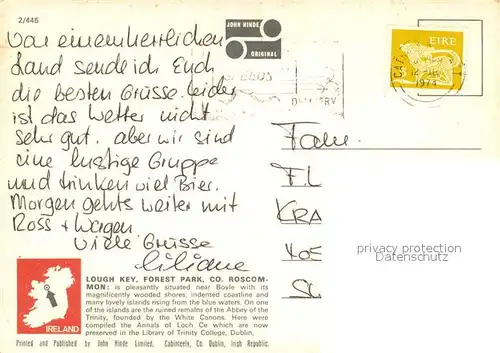 2/446
JOHN HINDE
ORIGINAL
EIRE
1974
Von einem herrlichen
Land sende ich Euch
die besten Grüsse. leider
ist das Wetter nicht
sehr gut. aber wir sind
eine lustige Gruppe
und trinken viel Bier.
Morgen gehts weiter mit
Ross + Wagen.
Viele Grüsse
Liliane
Fam.
F.L
KRA
privacy protection
Datenschutz
LOUGH KEY, FOREST PARK, CO. ROSCOM-
MON: is pleasantly situated near Boyle with its
magnificently wooded shores, indented coastline and
many lovely islands rising from the blue waters. On one
of the islands are the ruined remains of the Abbey of the
Trinity, founded by the White Canons. Here were
compiled the Annals of Loch Ce which are now
preserved in the Library of Trinity College, Dublin,
IRELAND
Printed and Published by John Hinde Limited, Cabinteely, Co. Dublin, Irish Republic.